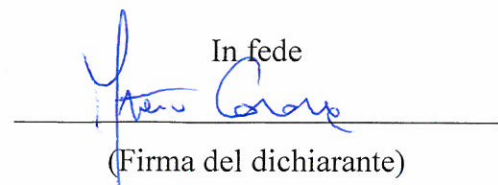 In fede
(Firma del dichiarante)